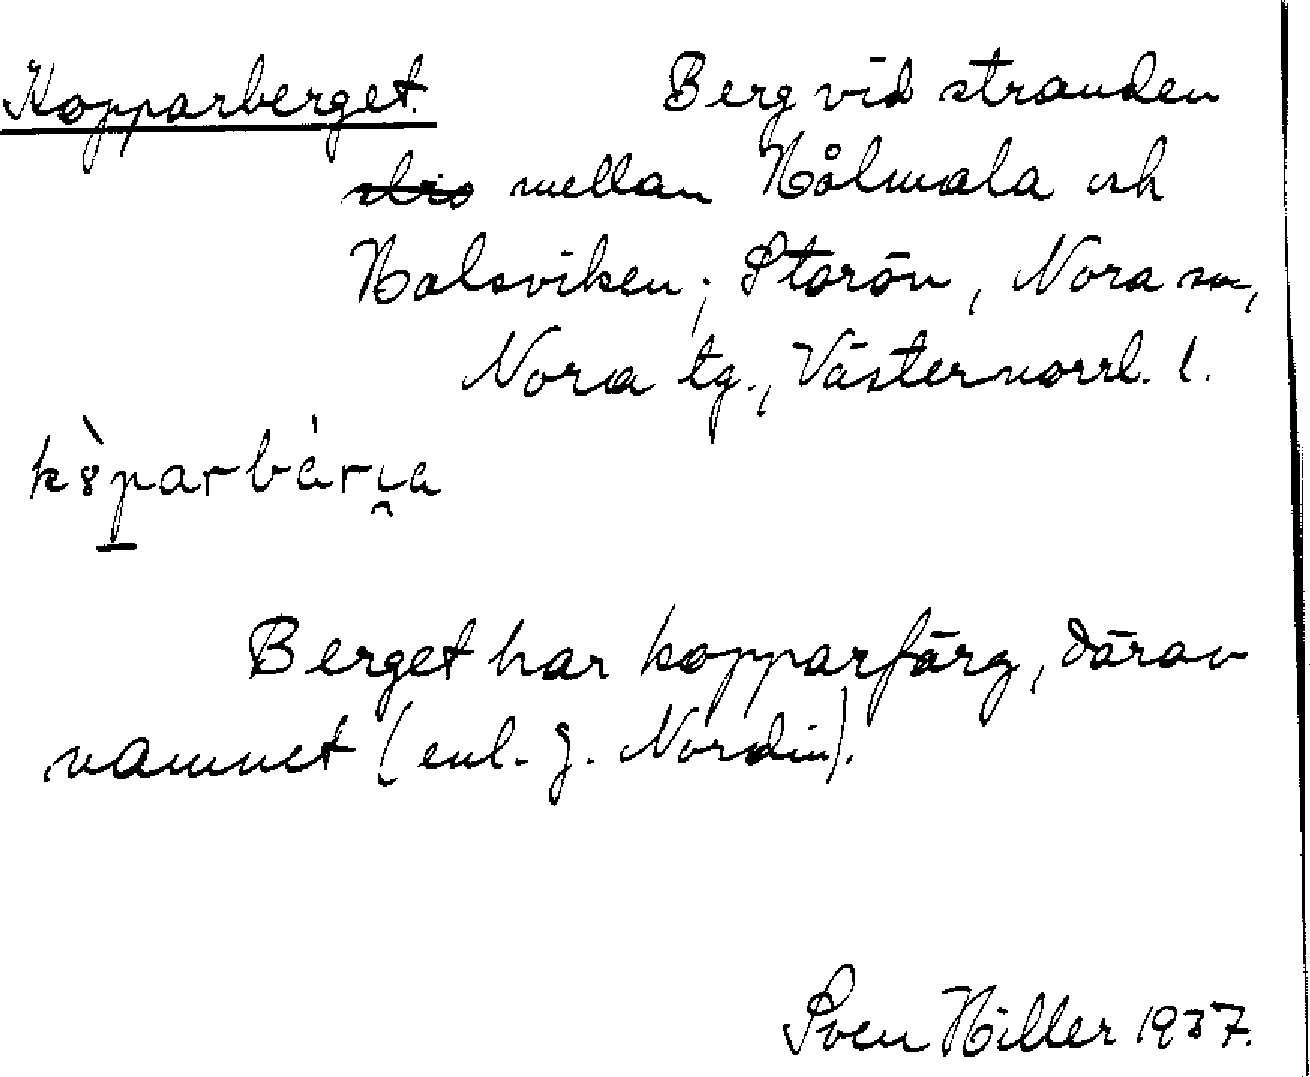 Kopparberget. Berg vid stranden
mellan Hålmala och
Halsviken; Storön, Nora sn,
Nora tg., Västernorrl. l.
Berget har kopparfärg, därav
namnet (enl. J. Nordin).
Sven Hiller 1937.